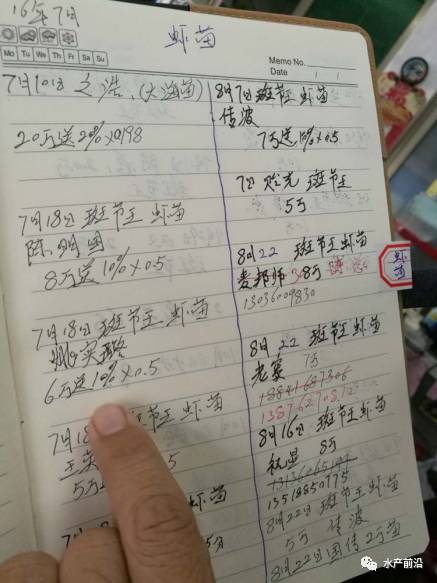 16年7月
虾苗
Memo No.
Mo Tu We Th Fr Sa Su
Date / /
7月10日 之浩 (大海苗)
20万送20%×0198
7月18日 斑节王 虾苗
陈明国
8万送10%×0.5
7月18日 斑节王 虾苗
6万送10%×0.5
7月18 斑节王 虾苗
5万
虾苗
8月7日 斑节王 虾苗
传波
7万送10%×0.5
7日 贻克 斑节王
5万
8月22 斑节王 虾苗
麦邦师 8万
13036009830
8月22 斑节王 虾苗
老寨 7万
13876270872
8月16日 斑节王 虾苗
8万
13518850775
8月22日 斑节王 虾苗
5万 传波
8月22日 国传 2万苗
虾苗
水产前沿